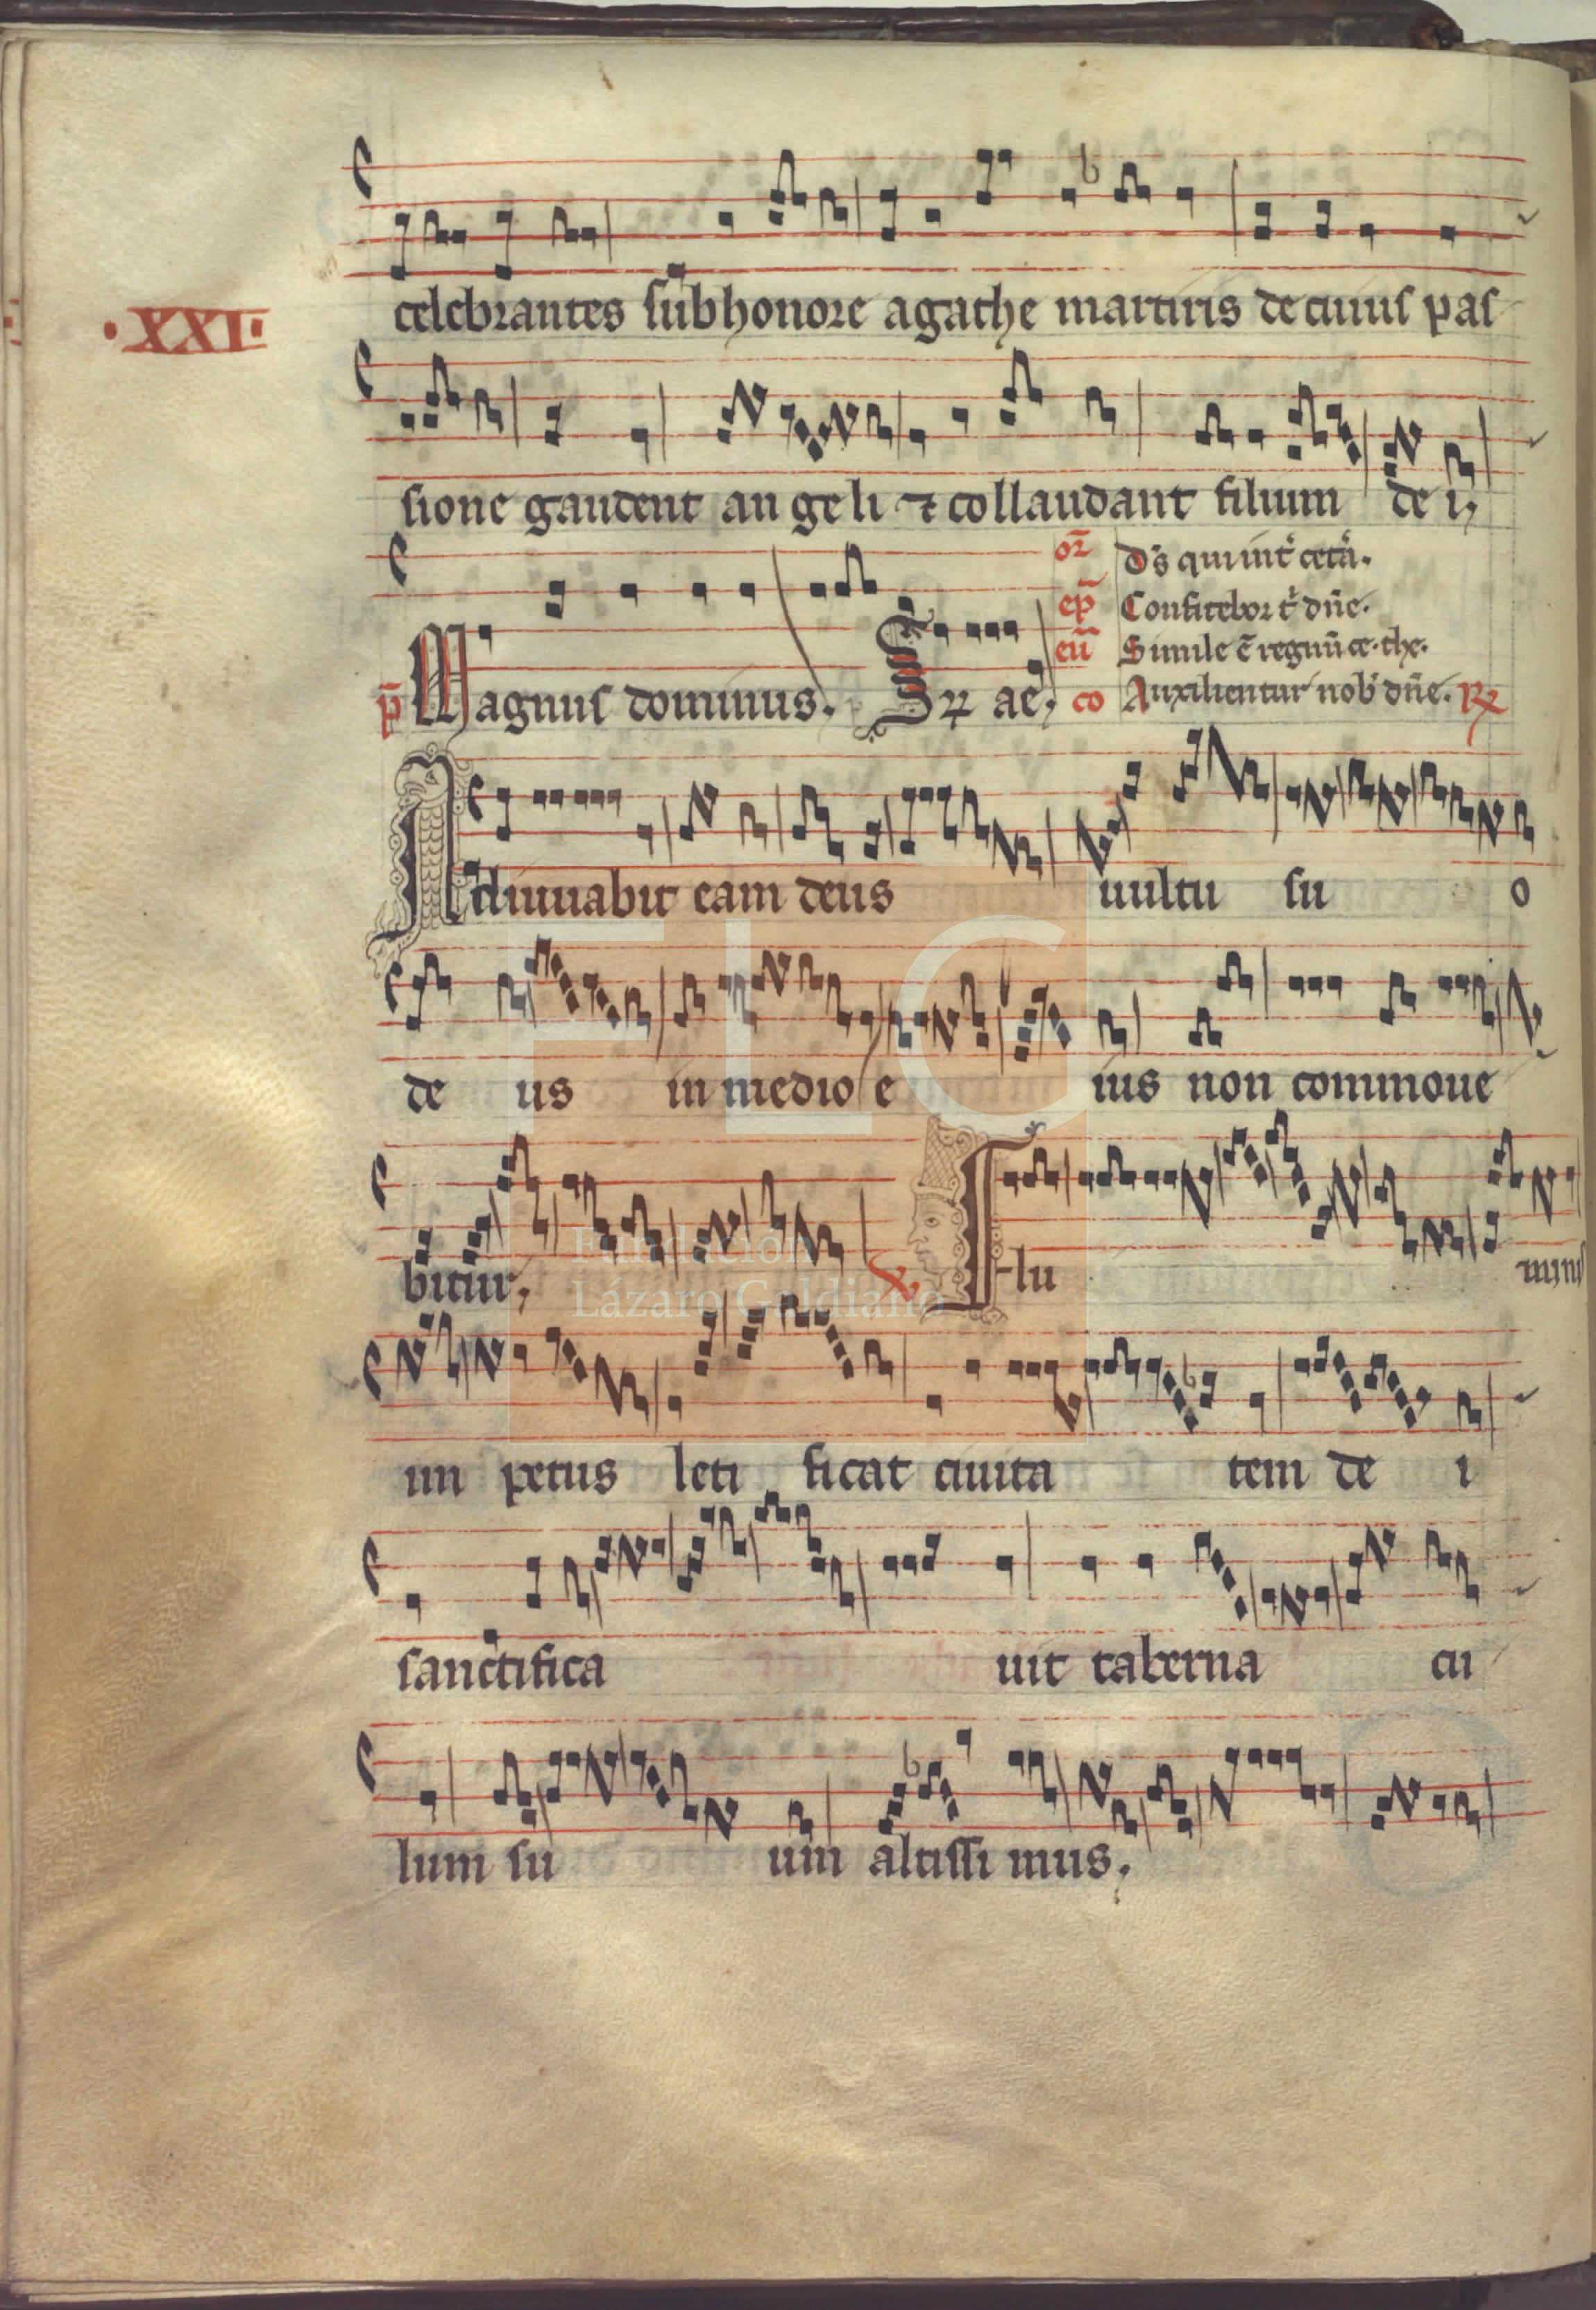 celebrantes sub honore agathe martiris de cuius pas
·XXI·
sione gaudent an ge li ⁊ collaudant filium de i,
or̄ D̄s qui int̓ cet̓a.
ep̄ Confitebor t̓ dn̄e.
eū Simile ē regnū ce. the.
p̄ Magnus dominus. Eꝝ ae, co Auxilientur nob̓ dn̄e. ℞
Adiuuabit eam deus uultu su o
de us in medio e ius non commoue
bitur, ℣ Flu minis
im petus leti ficat ciuita tem de i
sanctifica uit taberna cu
lum su um altissi mus.
FLG
Fundación
Lázaro Galdiano